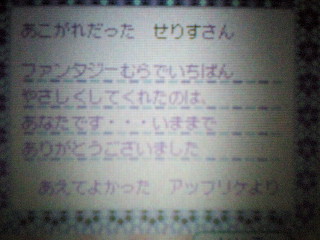 あこがれだった　せりすさん
ファンタジーむらでいちばん
やさしくしてくれたのは、
あなたです・・・いままで
ありがとうございました
あえてよかった　アップリケより